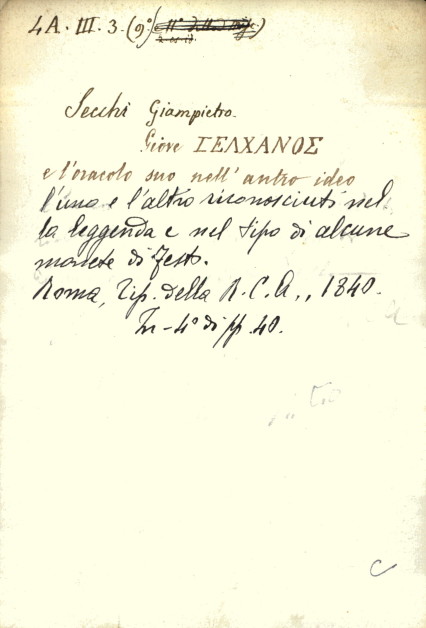 4A. III. 3. (9º)
Secchi Giampietro.
Giove ΓΕΛΧΑΝΟΣ
e l'oracolo suo nell'antro ideo
l'uno e l'altro riconosciuti nel
la leggenda e nel tipo di alcune
monete di Festo.
Roma, Tip. della R. C. A., 1840.
In-4º di pp. 40.
C